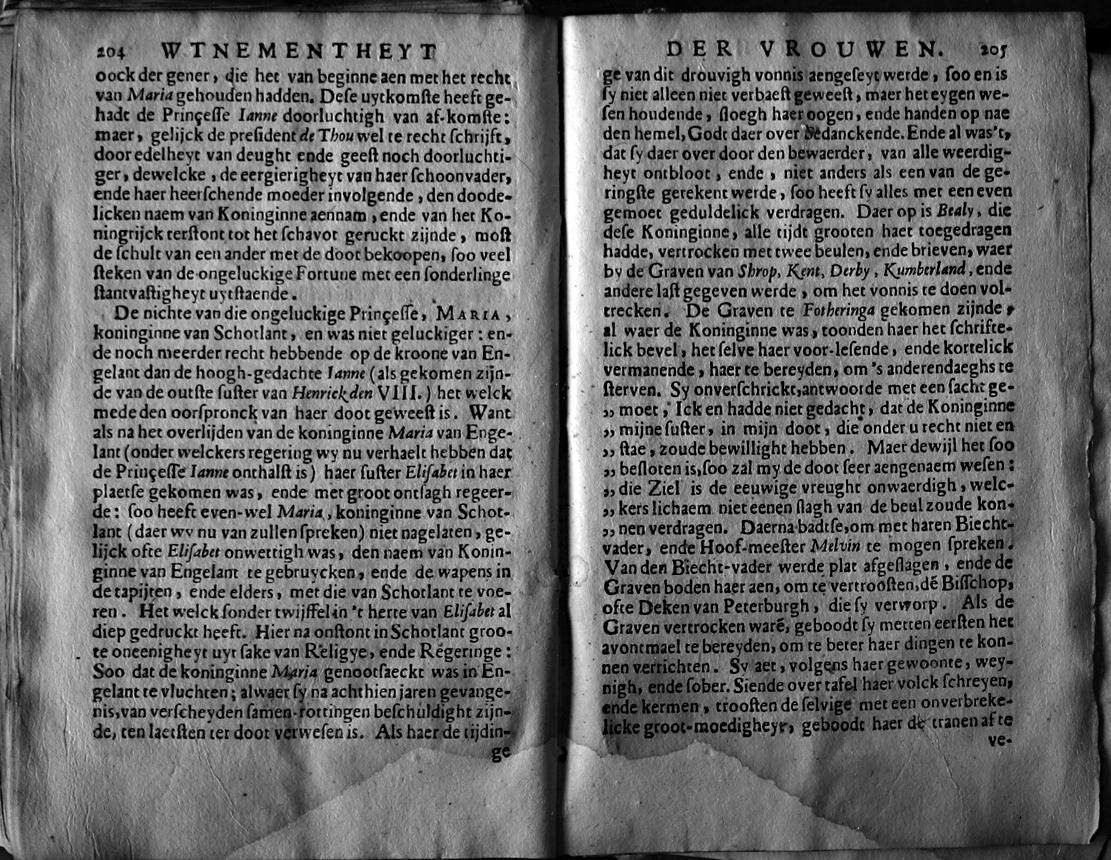 204 WTNEMENTHEYT
oock der gener, die het van beginne aen met het recht
van Maria gehouden hadden. Deſe uytkomſte heeft ge-
hadt de Prinçeſſe Ianne doorluchtigh van af-komſte:
maer, gelijck de preſident de Thou wel te recht ſchrijft,
door edelheyt van deught ende geeſt noch doorluchti-
ger, dewelcke, de eergierigheyt van haer ſchoonvader,
ende haer heerſchende moeder involgende, den doode-
licken naem van Koninginne aennam, ende van het Ko-
ningrijck terſtont tot het ſchavot geruckt zijnde, moſt
de ſchult van een ander met de doot bekoopen, ſoo veel
ſteken van de ongeluckige Fortune met een ſonderlinge
ſtantvaſtigheyt uytſtaende.
De nichte van die ongeluckige Prinçeſſe, MARIA,
koninginne van Schotlant, en was niet geluckiger: en-
de noch meerder recht hebbende op de kroone van En-
gelant dan de hoogh-gedachte Ianne (als gekomen zijn-
de van de outſte ſuſter van Henrick den VIII.) het welck
mede den oorſpronck van haer doot geweeſt is. Want
als na het overlijden van de koninginne Maria van Enge-
lant (onder welckers regering wy nu verhaelt hebben dat
de Prinçeſſe Ianne onthalſt is) haer ſuſter Eliſabet in haer
plaetſe gekomen was, ende met groot ontſagh regeer-
de: ſoo heeft even-wel Maria, koninginne van Schot-
lant (daer wy nu van zullen ſpreken) niet nagelaten, ge-
lijck ofte Eliſabet onwettigh was, den naem van Konin-
ginne van Engelant te gebruycken, ende de wapens in
de tapijten, ende elders, met die van Schotlant te voe-
ren. Het welck ſonder twijffel in 't herte van Eliſabet al
diep gedruckt heeft. Hier na onſtont in Schotlant groo-
te oneenigheyt uyt ſake van Religye, ende Regeringe:
Soo dat de koninginne Maria genootſaeckt was in En-
gelant te vluchten; alwaer ſy na achthien jaren gevange-
nis, van verſcheyden ſamen-rottingen beſchuldight zijn-
de, ten laetſten ter doot verweſen is. Als haer de tijdin-
ge
DER VROUWEN. 205
ge van dit drouvigh vonnis aengeſeyt werde, ſoo en is
ſy niet alleen niet verbaeſt geweeſt, maer het eygen we-
ſen houdende, ſloegh haer oogen, ende handen op nae
den hemel, Godt daer over bedanckende. Ende al was't,
dat ſy daer over door den bewaerder, van alle weerdig-
heyt ontbloot, ende, niet anders als een van de ge-
ringſte gerekent werde, ſoo heeft ſy alles met een even
gemoet geduldelick verdragen. Daer op is Bealy, die
deſe Koninginne, alle tijdt grooten haet toegedragen
hadde, vertrocken met twee beulen, ende brieven, waer
by de Graven van Shrop, Kent, Derby, Kumberland, ende
andere laſt gegeven werde, om het vonnis te doen vol-
trecken. De Graven te Fotheringa gekomen zijnde,
al waer de Koninginne was, toonden haer het ſchrifte-
lick bevel, het ſelve haer voor-leſende, ende kortelick
vermanende, haer te bereyden, om 's anderendaeghs te
ſterven. Sy onverſchrickt, antwoorde met een ſacht ge-
,, moet, Ick en hadde niet gedacht, dat de Koninginne
,, mijne ſuſter, in mijn doot, die onder u recht niet en
,, ſtae, zoude bewillight hebben. Maer dewijl het ſoo
,, beſloten is, ſoo zal my de doot ſeer aengenaem weſen:
,, die Ziel is de eeuwige vreught onwaerdigh, welc-
,, kers lichaem niet eenen ſlagh van de beul zoude kon-
,, nen verdragen. Daerna badtſe, om met haren Biecht-
vader, ende Hoof-meeſter Melvin te mogen ſpreken.
Van den Biecht-vader werde plat afgeſlagen, ende de
Graven boden haer aen, om te vertrooſten, dē Biſſchop,
ofte Deken van Peterburgh, die ſy verworp. Als de
Graven vertrocken warē, geboodt ſy metten eerſten het
avontmael te bereyden, om te beter haer dingen te kon-
nen verrichten. Sy aet, volgens haer gewoonte, wey-
nigh, ende ſober. Siende over tafel haer volck ſchreyen,
ende kermen, trooſten de ſelvige met een onverbreke-
licke groot-moedigheyt, geboodt haer de tranen af te
ve-